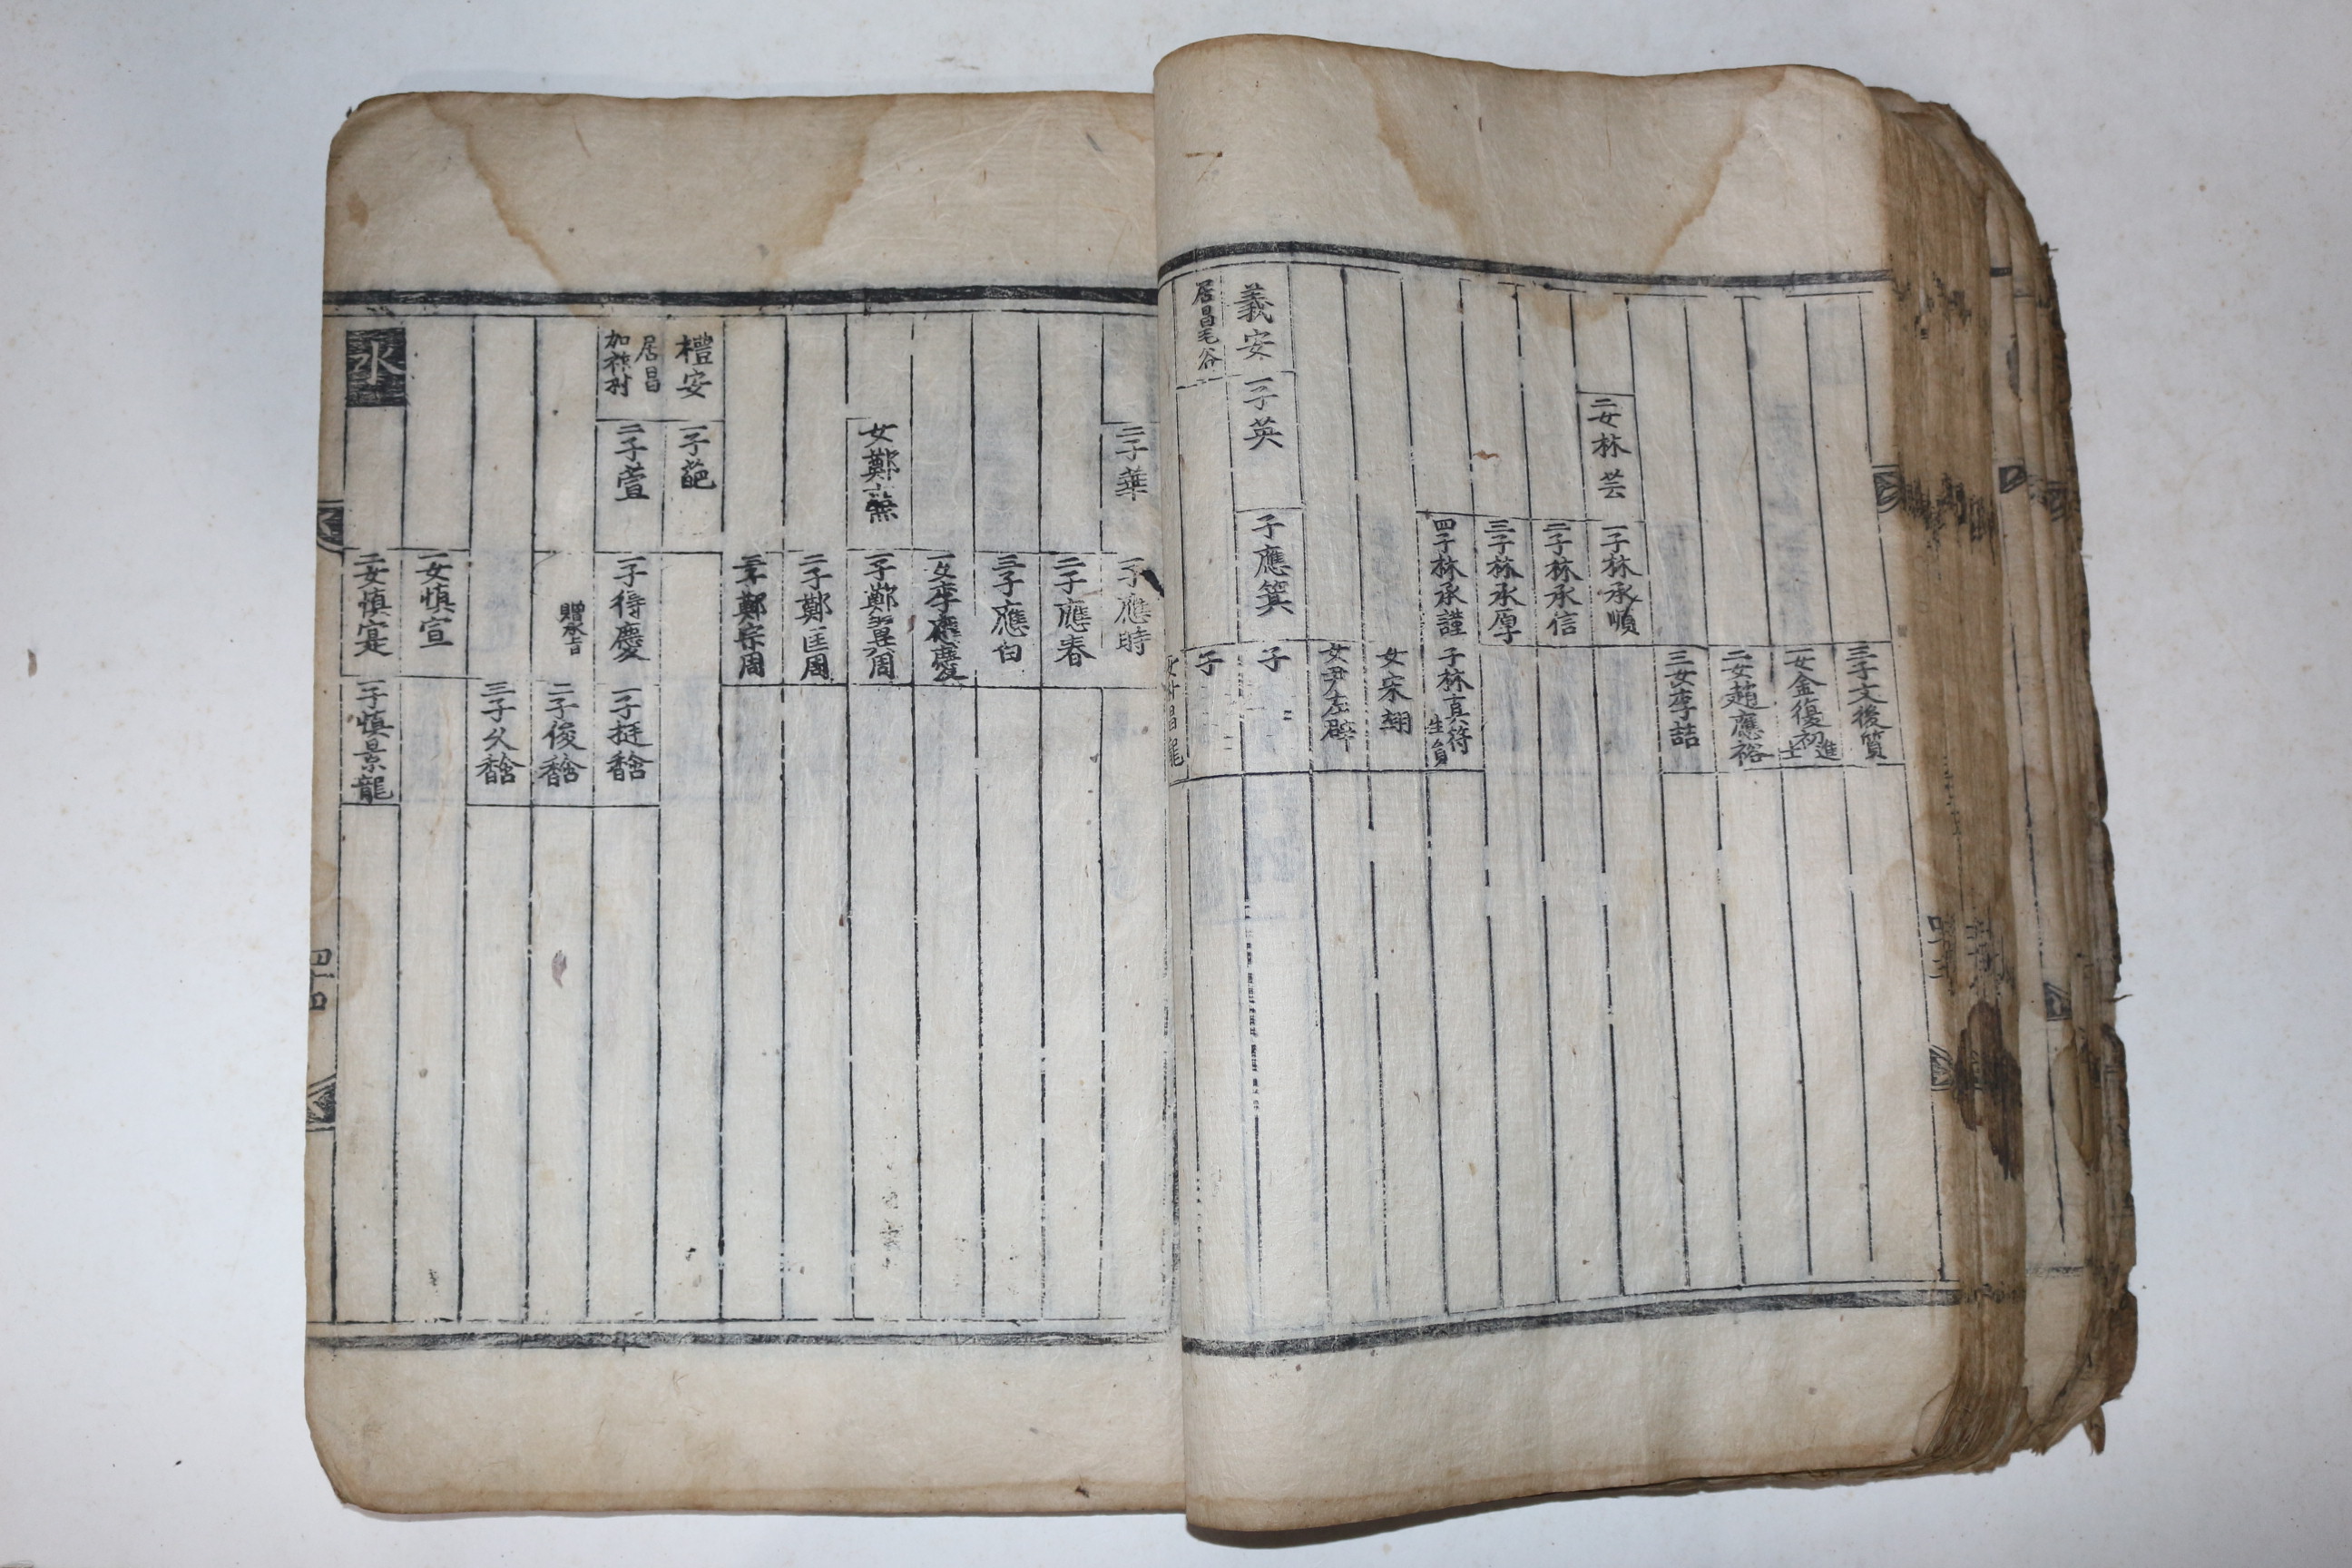 三子文後質
一女金復初進士
二女趙應裕
三女李喆
二女林芸
一子林承順
二子林承信
三子林承厚
四子林承謹
子林真符生員
女宋翃
女尹左辟
義安
一子英
子應箕
子
居昌毛谷
子
二子華
子應時
二子應春
三子應白
一女李應慶
女鄭
一子鄭異周
二子鄭匡周
三子鄭宗周
禮安
一子葩
居昌
加祚村
二子萱
一子得慶
一子挺馠
贈承旨
二子俊馠
三子久馠
一女愼宣
水
二女愼寔
一子愼景龍
四十四